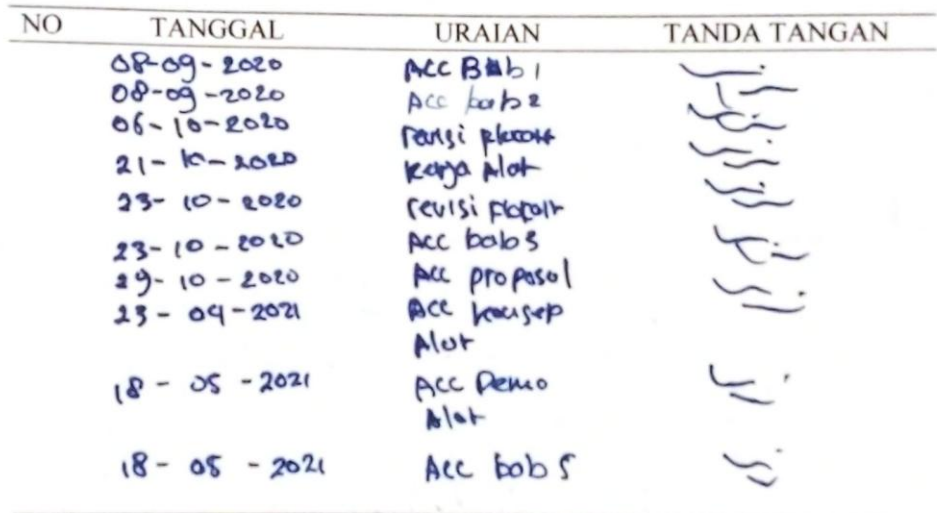 NO TANGGAL URAIAN TANDA TANGAN
08-09-2020 Acc Bab 1
08-09-2020 Acc bab 2
06-10-2020 revisi
21-10-2020 Kerja Alat
23-10-2020 revisi
23-10-2020 Acc bab 3
29-10-2020 Acc proposal
23-04-2021 Acc konsep
Alat
18-05-2021 Acc Demo
Alat
18-05-2021 Acc bab 5